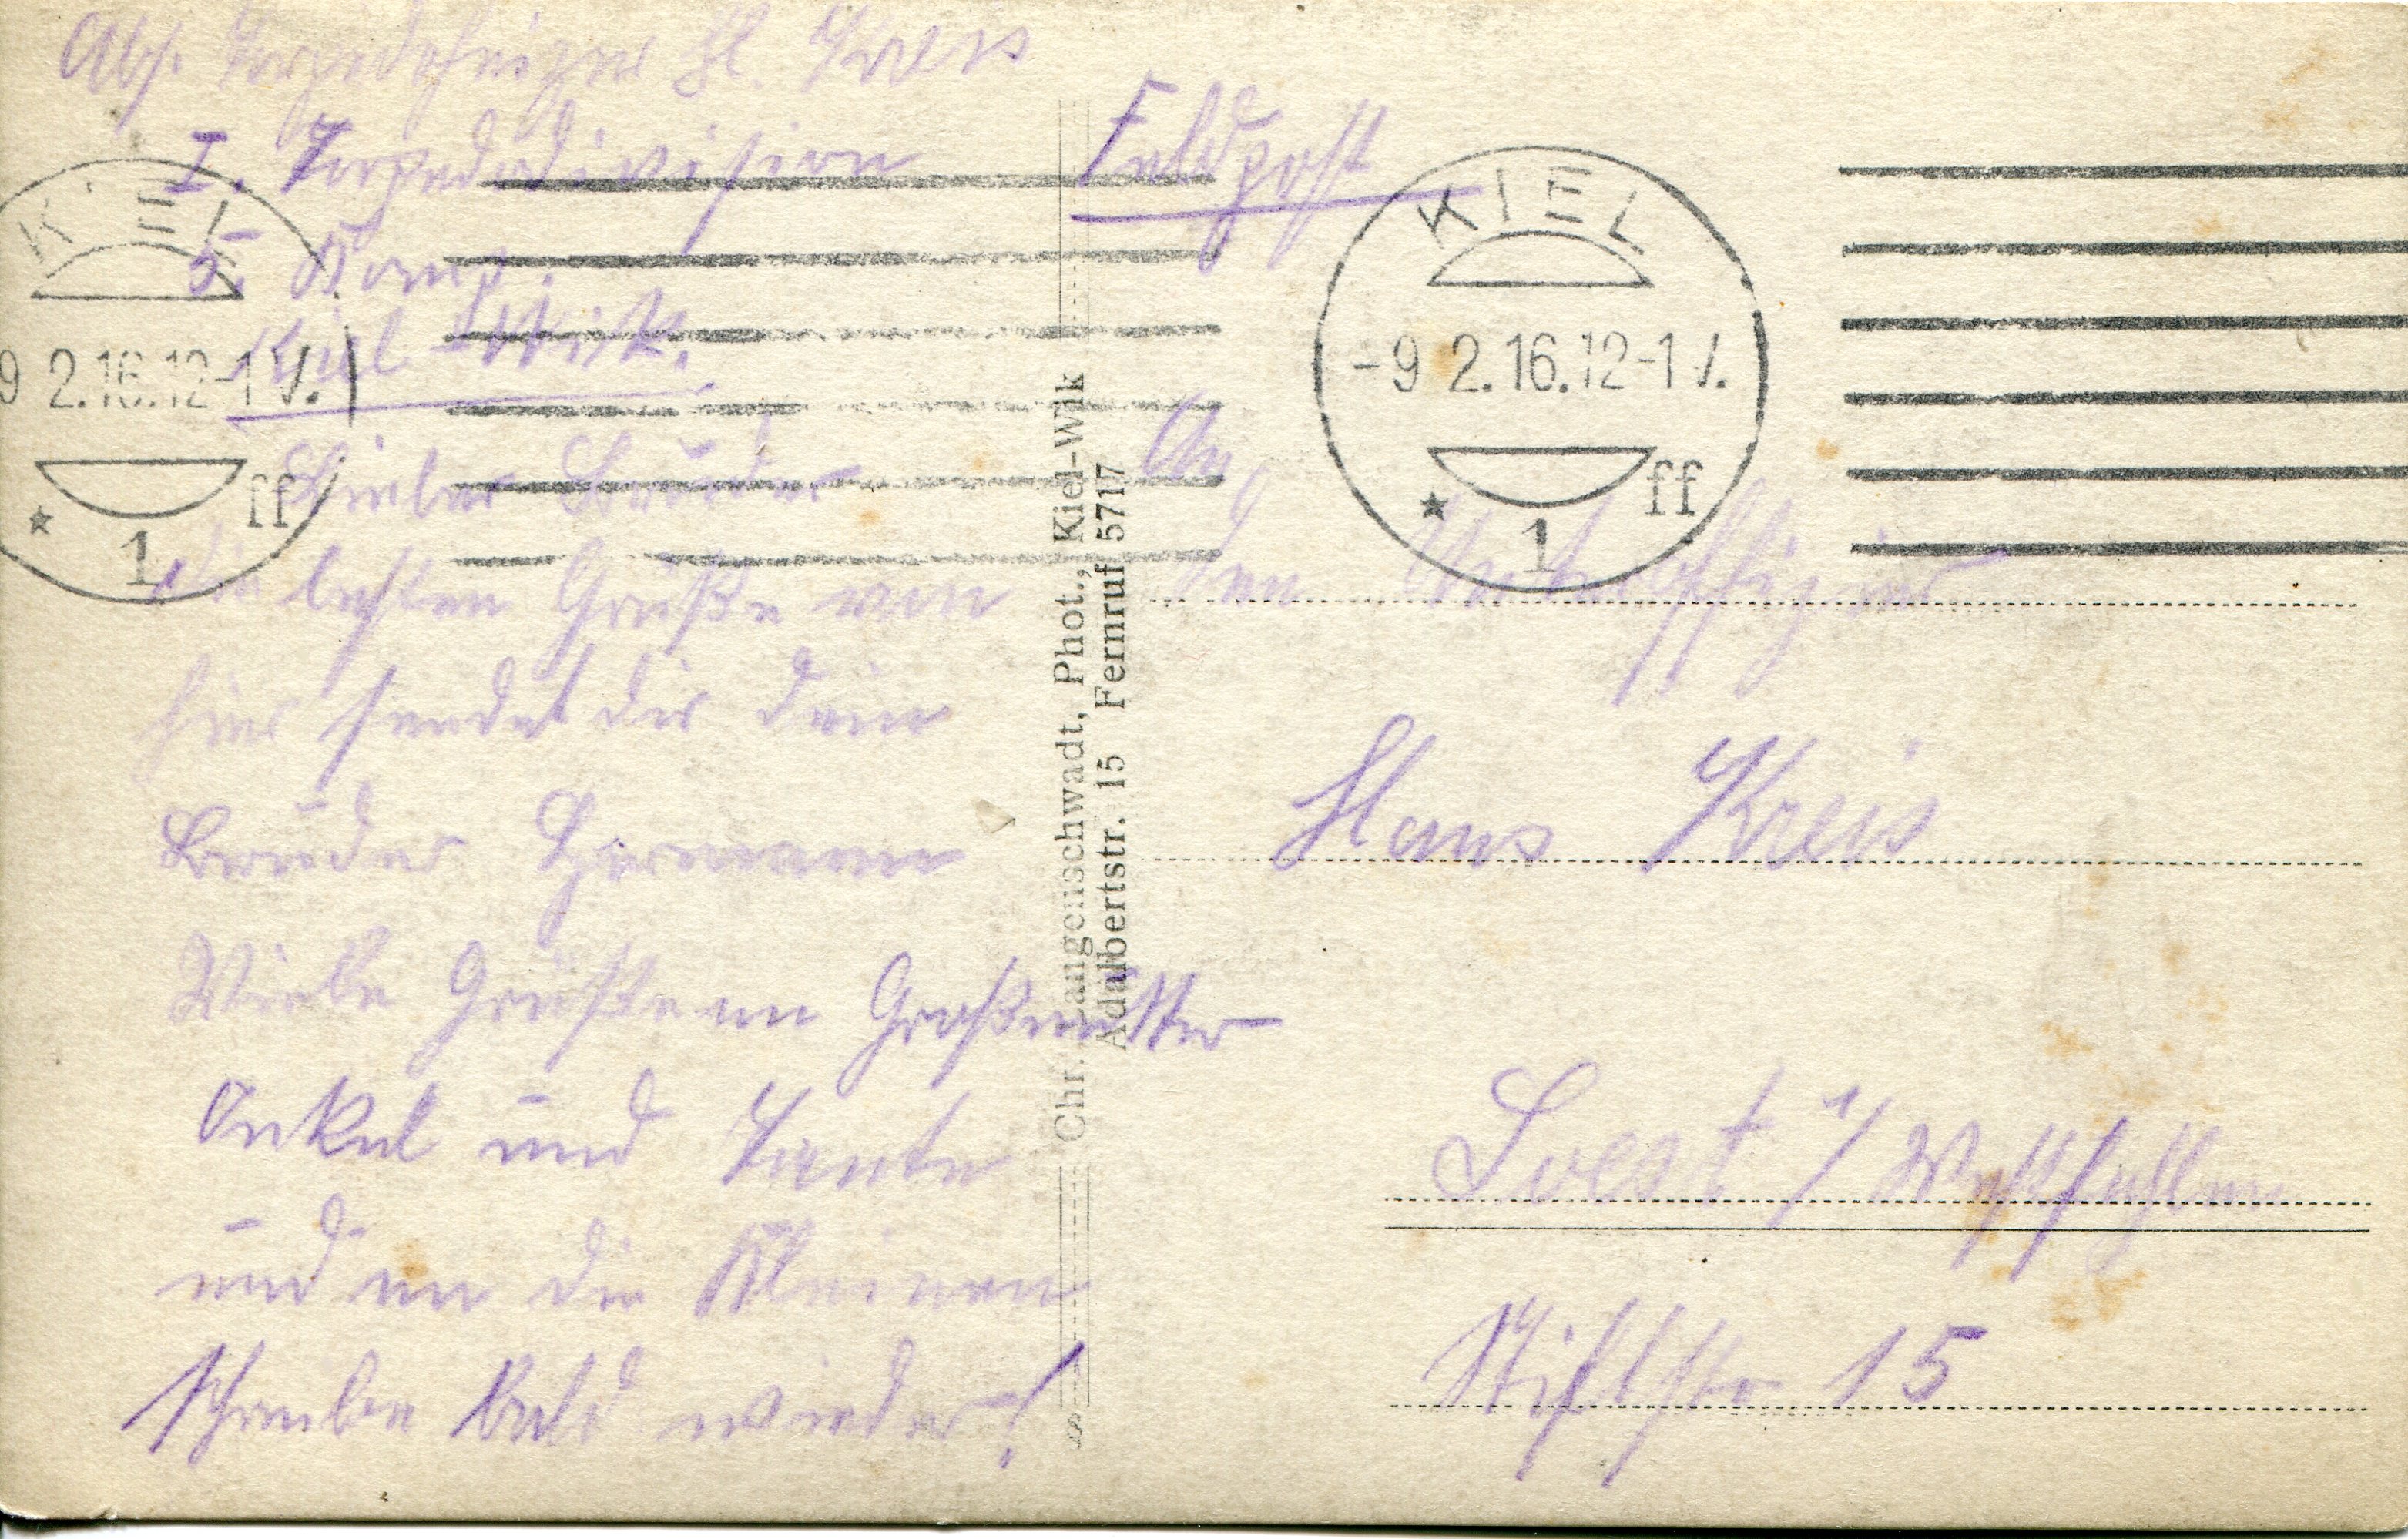 Abs. Torpedoheizer H. Kreis
I. Torpedodivision
5. Komp.
Kiel-Wik.
Lieber Bruder
Die besten Grüße von
hier sendet dir dein
Bruder Hermann
Viele Grüße an Großmutter
Onkel und Tante
und an die Kleinen
schreibe bald wieder!
KIEL
9 2.16.12-1 V.
* 1 ff
Chr. Langenschwadt, Phot., Kiel-Wik
Adalbertstr. 15 Fernruf 5717
S
Feldpost
KIEL
-9 2.16.12-1 V.
* 1 ff
An
den Unteroffizier
Hans Kreis
Soest i/Westfahlen
Stiftstr 15